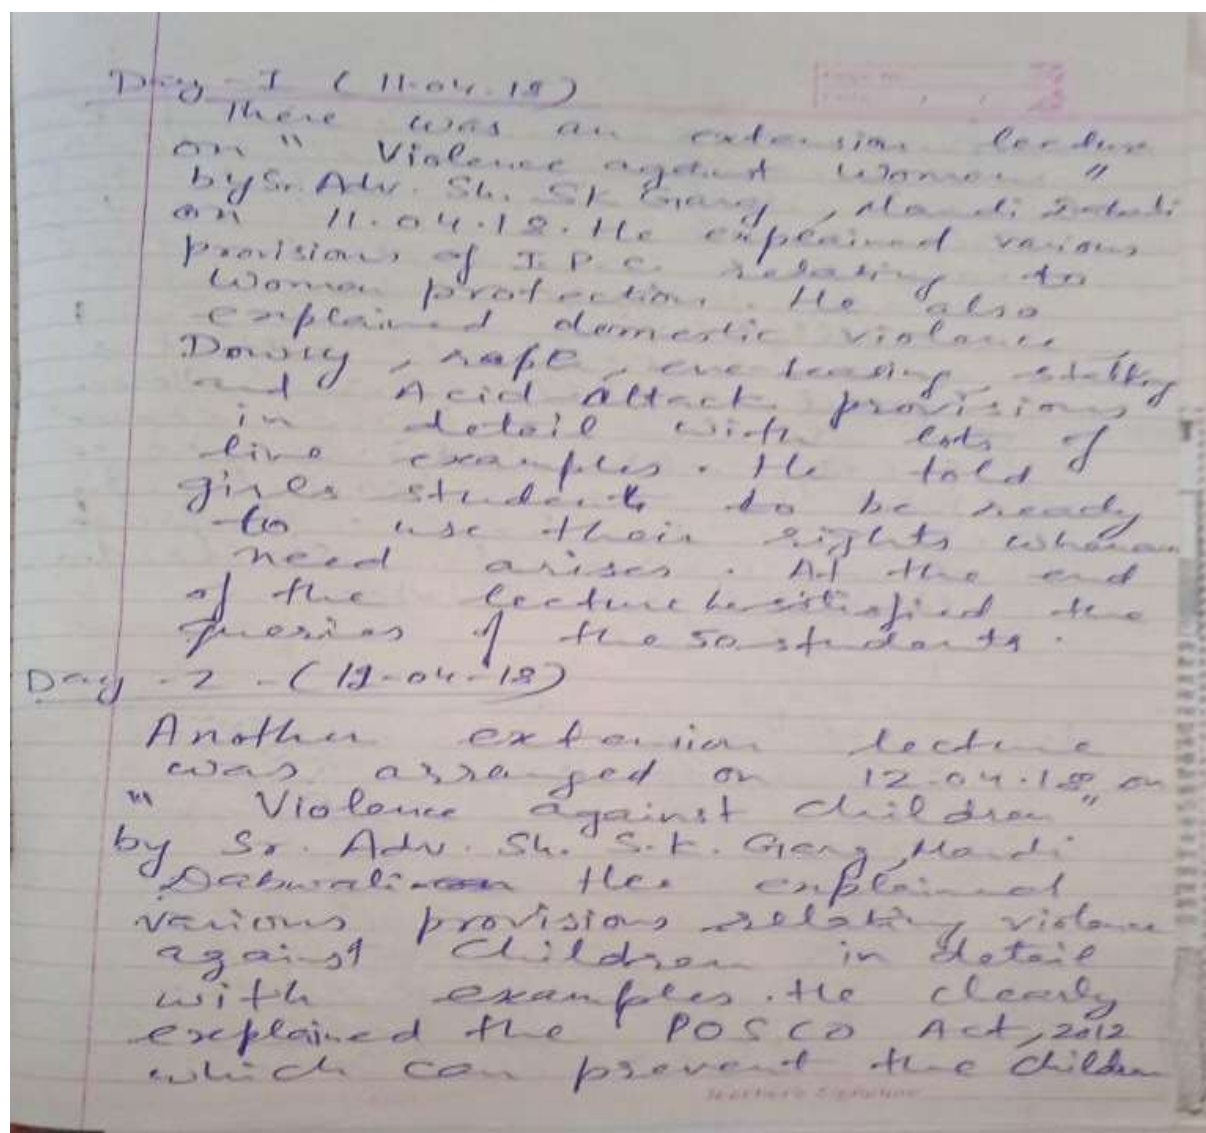 Day - I (11.04.18)
There was an extension lecture
on " Violence against Women "
by Sr. Adv. Sh. SK Garg, Mandi
on 11.04.18. He explained various
provisions of I.P.C. relating to
Women protection. He also
explained domestic violence,
Dowry, rape, eve teasing, stalking
and Acid Attack provisions
in detail with lots of
live examples. He told
girls students to be ready
to use their rights
need arises. At the end
of the lecture he satisfied the
queries of the 50 students.
Day - 2 - (12-04-18)
Another extension lecture
was arranged on 12.04.18 on
" Violence against Children"
by Sr. Adv. Sh. S.K. Garg, Mandi
Dabwali explained
various provisions relating violence
against Children in detail
with examples. He clearly
explained the POSCO Act, 2012
which can prevent the Children